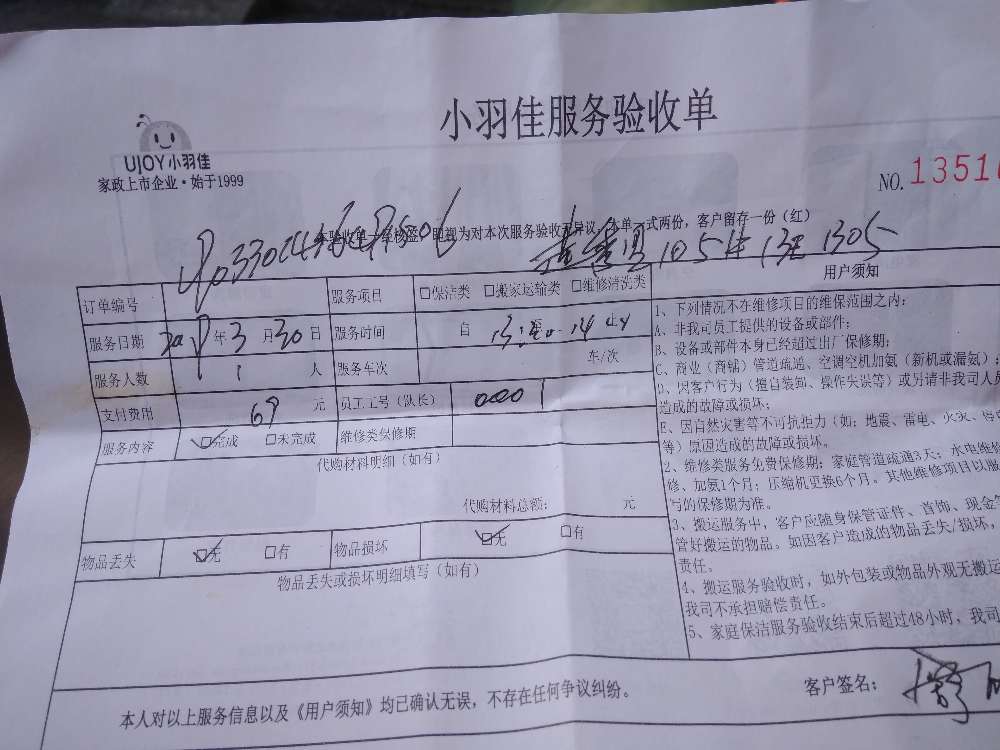 小羽佳服务验收单
UJOY小羽佳
家政上市企业·始于1999
NO.13510
本验收单一经签, 即视为对本次服务验收无异议, 本单一式两份, 客户留存一份(红)
105 1305
订单编号 服务项目 □保洁类 □搬家运输类 □维修清洗类
用户须知
服务日期 年3月30日 服务时间 自 13:20 至 14
服务人数 1 人 服务车次 车/次
支付费用 69 元 员工工号(队长) 0001
服务内容 □完成 □未完成 维修类保修期
代购材料明细(如有)
代购材料总额: 元
物品丢失 □无 □有 物品损坏 □无 □有
物品丢失或损坏明细填写(如有)
1、下列情况不在维修项目的维保范围之内:
A、非我司员工提供的设备或部件;
B、设备或部件本身已经超过出厂保修期;
C、商业(商铺)管道疏通、空调空机加氨(新机或漏氨);
D、因客户行为(擅自装卸、操作失误等)或另请非我司人员
造成的故障或损坏;
E、因自然灾害等不可抗拒力(如: 地震、雷电、火灾、
等)原因造成的故障或损坏。
2、维修类服务免费保修期: 家庭管道疏通3天; 水电维修
修、加氨1个月; 压缩机更换6个月。其他维修项目以服
写的保修期为准。
3、搬运服务中, 客户应随身保管证件、首饰、现金
管好搬运的物品。如因客户造成的物品丢失/损坏,
责任。
4、搬运服务验收时, 如外包装或物品外观无搬运
我司不承担赔偿责任。
5、家庭保洁服务验收结束后超过48小时, 我司
本人对以上服务信息以及《用户须知》均已确认无误, 不存在任何争议纠纷。
客户签名: